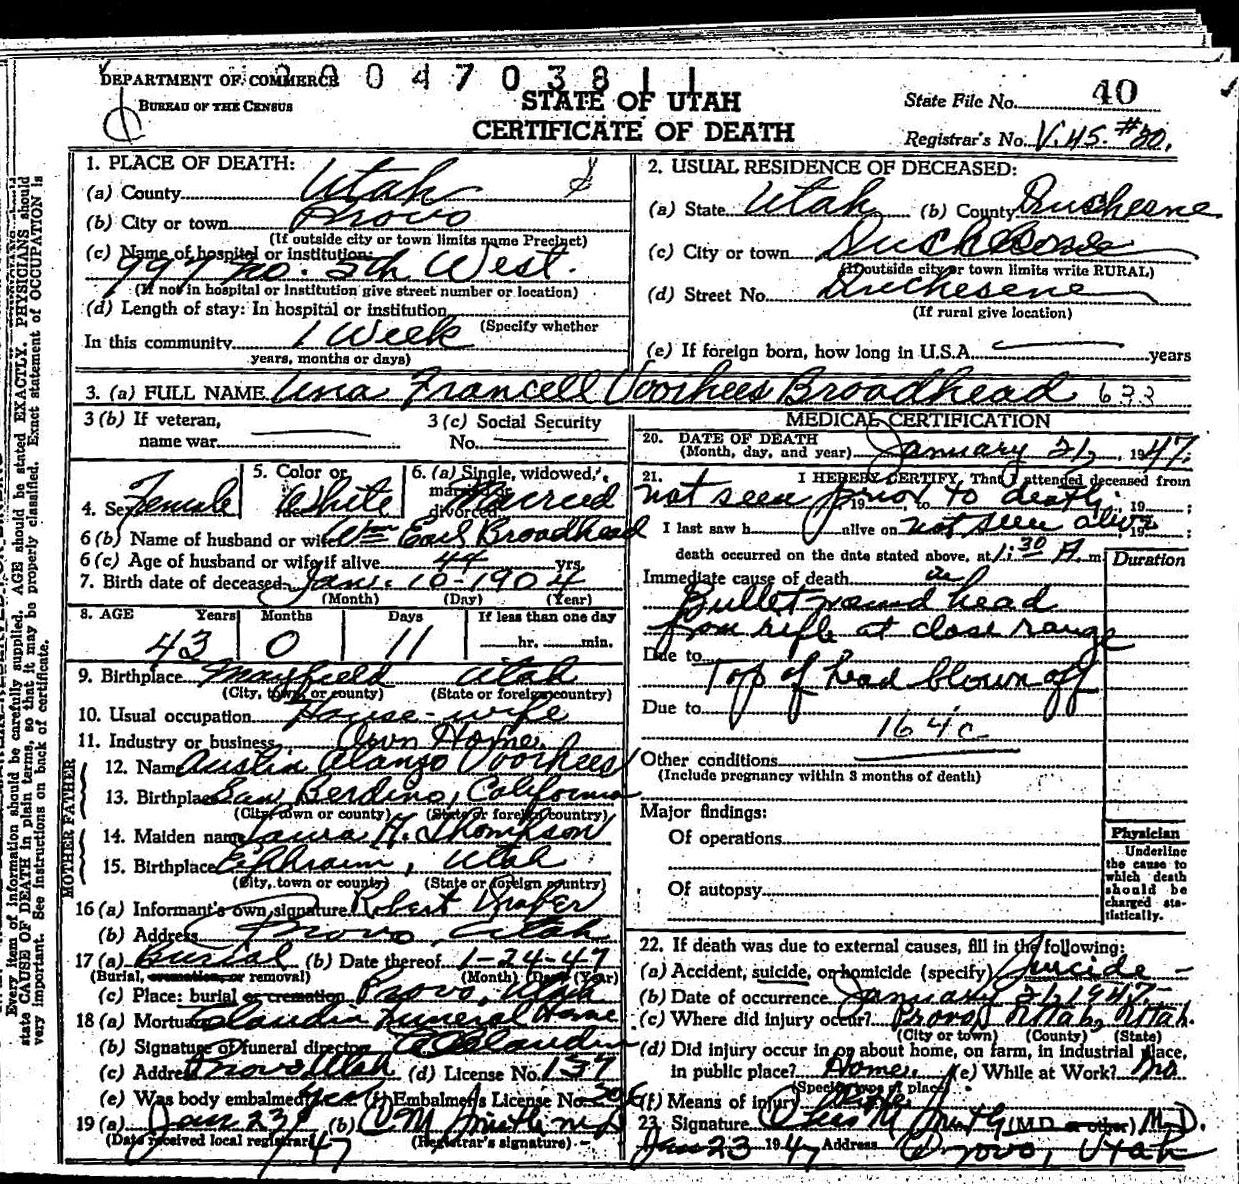 DEPARTMENT OF COMMERCE
BUREAU OF THE CENSUS
0 0 4 7 0 3 8 1 1
STATE OF UTAH
CERTIFICATE OF DEATH
State File No. 40
Registrar's No. V.45. #20.
1. PLACE OF DEATH:
(a) County Utah
(b) City or town Provo
(If outside city or town limits name Precinct)
(c) Name of hospital or institution:
997 No. 5th West.
(If not in hospital or Institution give street number or location)
(d) Length of stay: In hospital or institution
(Specify whether
In this community 1 Week
years, months or days)
2. USUAL RESIDENCE OF DECEASED:
(a) State Utah (b) County Duchesne
(c) City or town Duchesne
(If outside city or town limits write RURAL)
(d) Street No. Duchesene
(If rural give location)
(e) If foreign born, how long in U.S.A. years
3. (a) FULL NAME Una Francell Voorhees Broadhead 633
3 (b) If veteran, name war
3 (c) Social Security No.
4. Sex Female
5. Color or race White
6. (a) Single, widowed, married or divorced Married
6 (b) Name of husband or wife Wm Earl Broadhead
6 (c) Age of husband or wife if alive 44 yrs.
7. Birth date of deceased Jan. 10-1904
(Month) (Day) (Year)
8. AGE Years Months Days If less than one day
43 0 11 hr. min.
9. Birthplace Mayfield Utah
(City, town, or county) (State or foreign country)
10. Usual occupation House-wife
11. Industry or business Own Home
FATHER
12. Name Austin Alanzo Voorhees
13. Birthplace San Berdino, California
(City, town or county) (State or foreign country)
MOTHER
14. Maiden name Laura A. Thompson
15. Birthplace Ephraim, Utah
(City, town or county) (State or foreign country)
16 (a) Informant's own signature Robert Draper
(b) Address Provo, Utah
17 (a) Burial (b) Date thereof 1-24-47
(Burial, cremation, or removal) (Month) (Day) (Year)
(c) Place: burial or cremation Provo, Utah
18 (a) Mortuary Claudin Funeral Home
(b) Signature of funeral director Claudin
(c) Address Provo, Utah (d) License No. 137
(e) Was body embalmed? yes (f) Embalmer's License No. 396
19 (a) Jan 23, 47 (b) O M Smith MD
(Date received local registrar) (Registrar's signature)
MEDICAL CERTIFICATION
20. DATE OF DEATH
(Month, day, and year) January 21, 1947.
21. I HEREBY CERTIFY, That I attended deceased from
not seen prior to death, 19 , to , 19 ;
I last saw h alive on not seen alive, 19 ;
death occurred on the date stated above, at 1:30 A m.
Duration
Immediate cause of death
Bullet wound in head
from rifle at close range
Due to
Top of head blown off
Due to
164c
Other conditions
(Include pregnancy within 3 months of death)
Major findings:
Of operations
Of autopsy
Physician
Underline
the cause to
which death
should be
charged sta-
tistically.
22. If death was due to external causes, fill in the following:
(a) Accident, suicide, or homicide (specify) Suicide -
(b) Date of occurrence January 21, 1947.
(c) Where did injury occur? Provo Utah, Utah.
(City or town) (County) (State)
(d) Did injury occur in or about home, on farm, in industrial place,
in public place? Home. (e) While at Work? No
(Specify type of place)
(f) Means of injury Rifle
23. Signature Otis M Smith (M.D. or other) M.D.
Jan 23 1947 Address Provo, Utah
Every item of information should be carefully supplied. AGE should be stated EXACTLY. PHYSICIANS should
state CAUSE OF DEATH in plain terms, so that it may be properly classified. Exact statement of OCCUPATION is
very important. See instructions on back of certificate.